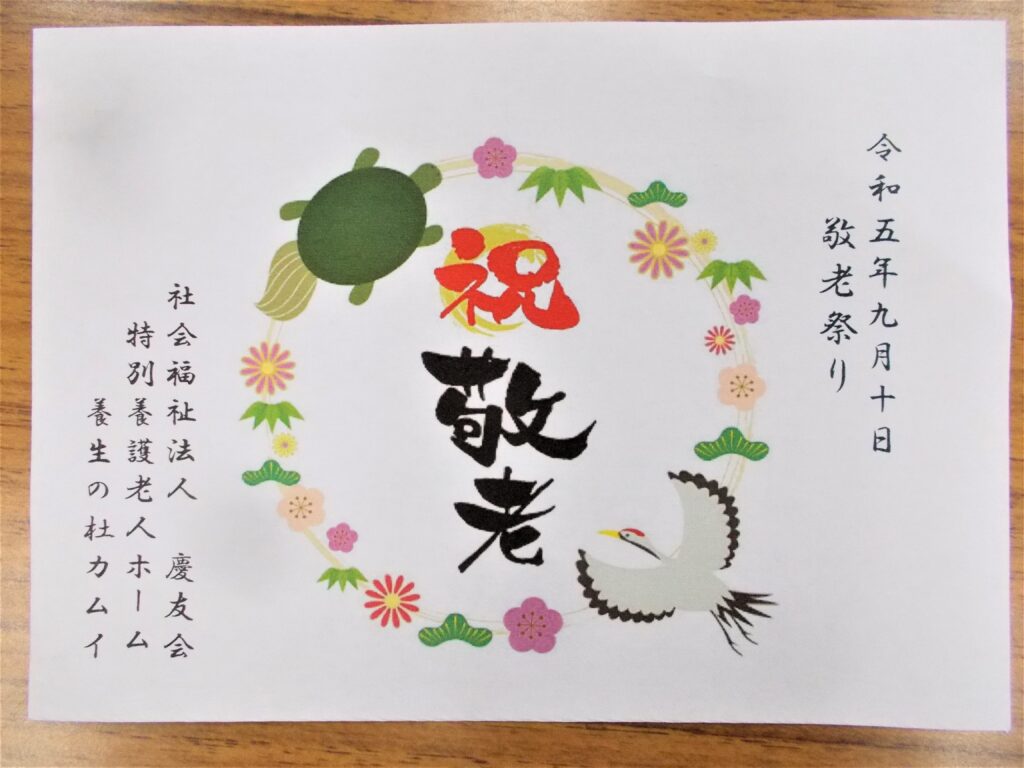 令和五年九月十日
敬老祭り
祝
敬老
社会福祉法人　慶友会
特別養護老人ホーム
養生の杜カムイ